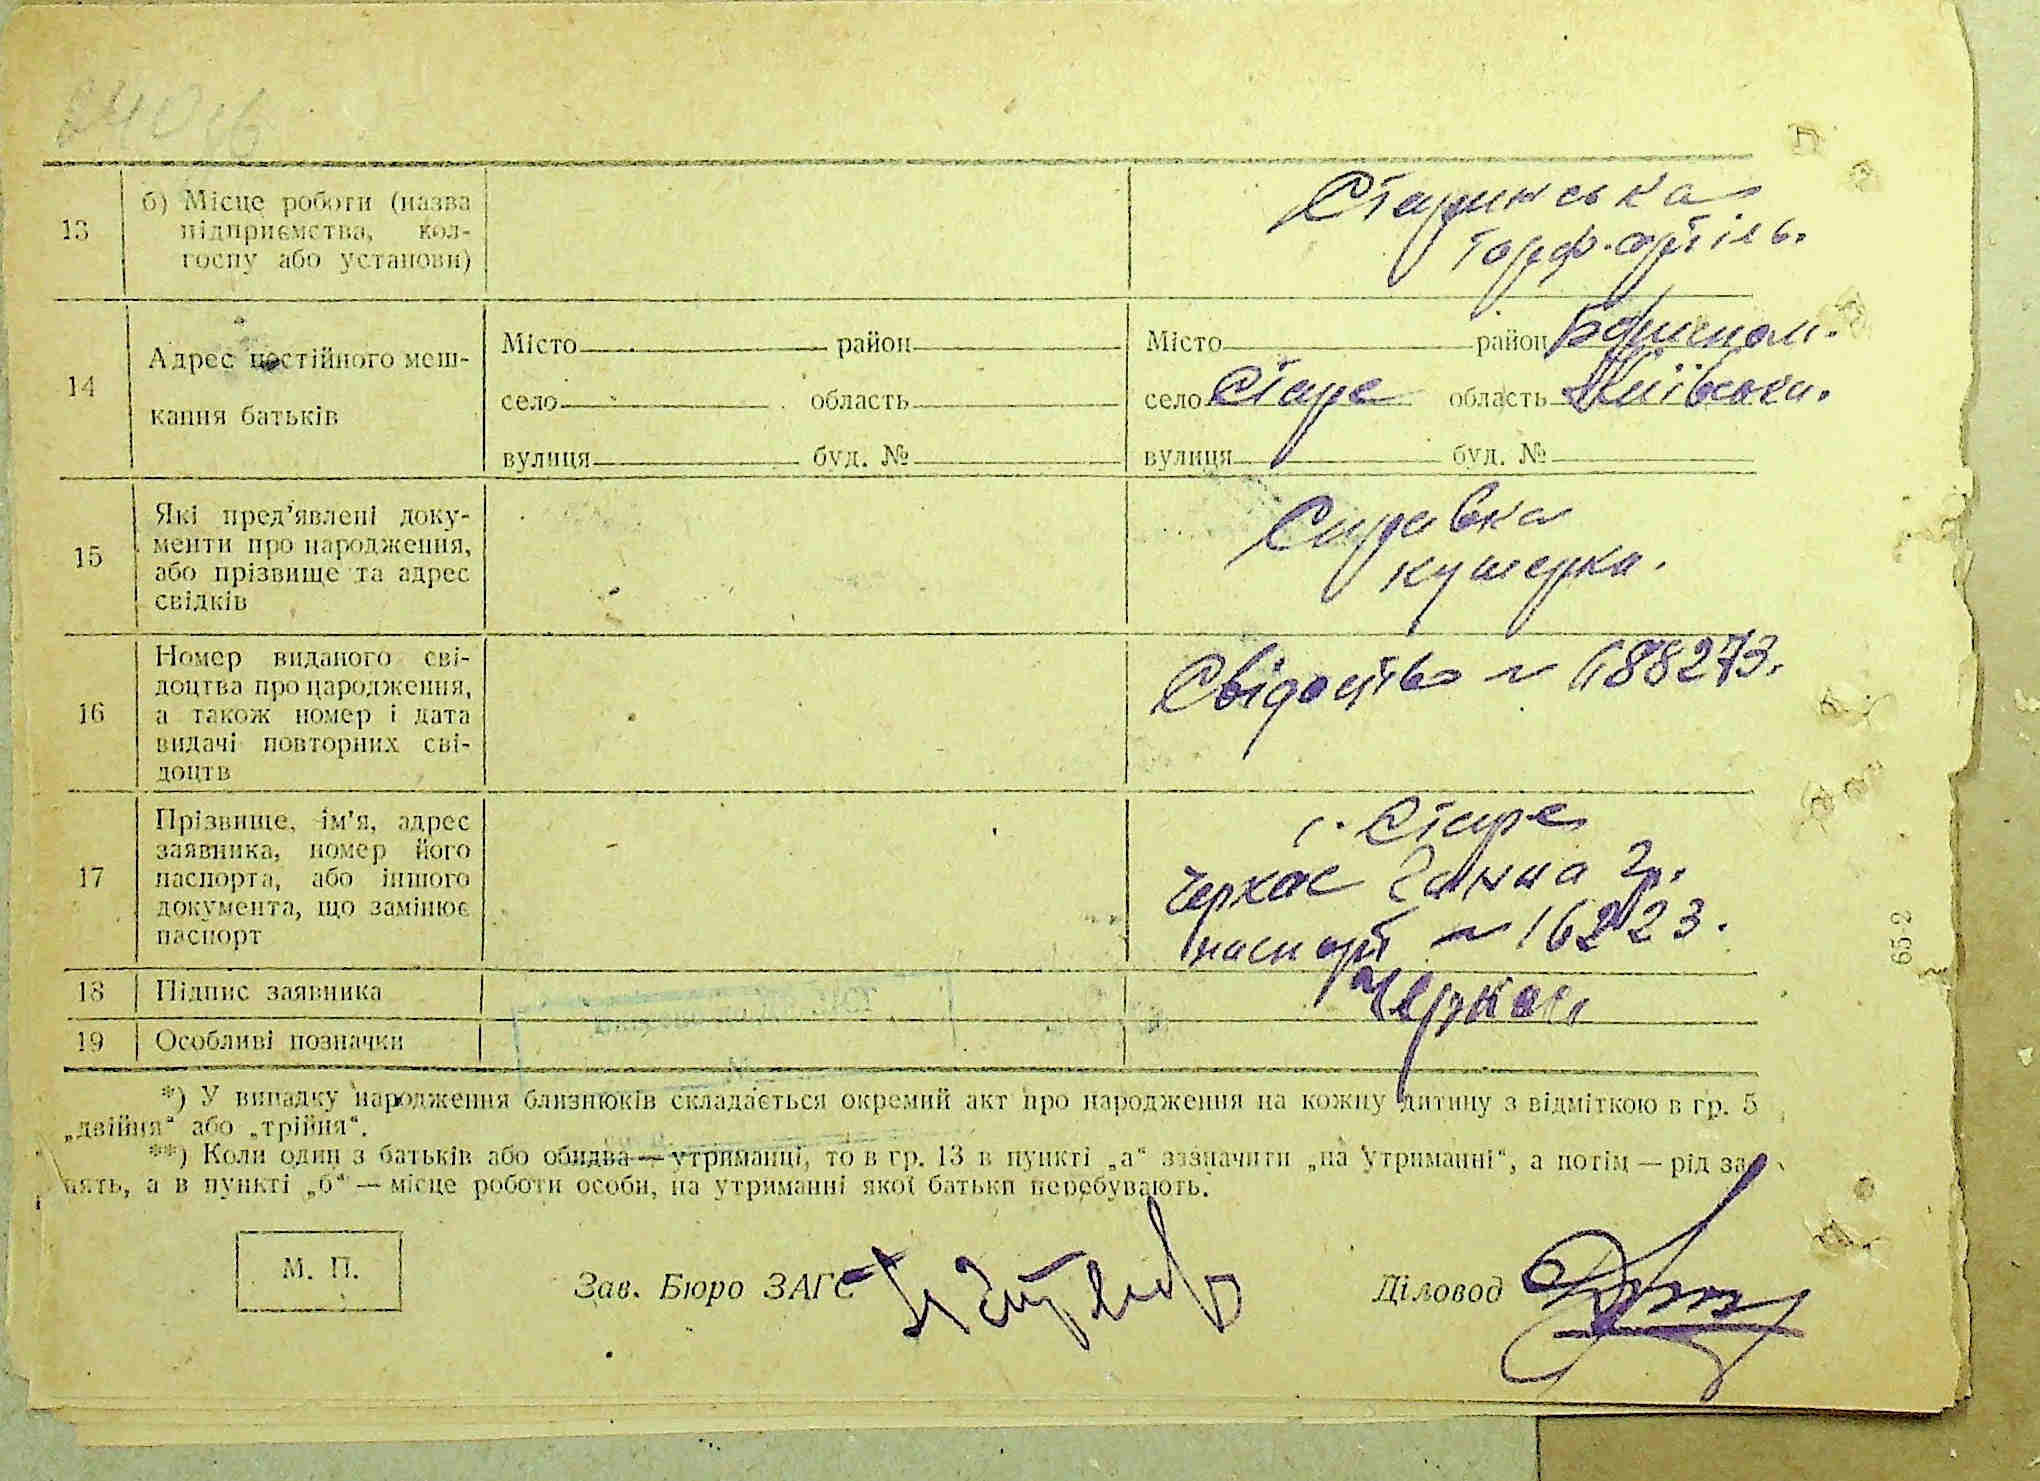 13
б) Місце роботи (назва
підприємства, кол-
госпу або установи)
Старинська
торф-артіль.
14
Адрес постійного меш-
кання батьків
Місто район
село область
вулиця буд. №
Місто район Бориспол.
село Старе область Київська.
вулиця буд. №
15
Які пред'явлені доку-
менти про народження,
або прізвище та адрес
свідків
Справка
кушерка.
16
Номер виданого сві-
доцтва про народження,
а також номер і дата
видачі повторних сві-
доцтв
Свідоцтво № 688273.
17
Прізвище, ім'я, адрес
заявника, номер його
паспорта, або іншого
документа, що замінює
паспорт
с. Старе
Черкас Ганна Гр.
паспорт № 162223.
18
Підпис заявника
Черкас
19
Особливі позначки
*) У випадку народження близнюків складається окремий акт про народження на кожну дитину з відміткою в гр. 5
„двійня“ або „трійня“.
**) Коли один з батьків або обидва — утриманці, то в гр. 13 в пункті „а“ зазначити „на утриманні“, а потім — рід за-
нять, а в пункті „б“ — місце роботи особи, на утриманні якої батьки перебувають.
М. П.
Зав. Бюро ЗАГС
Діловод
65-2